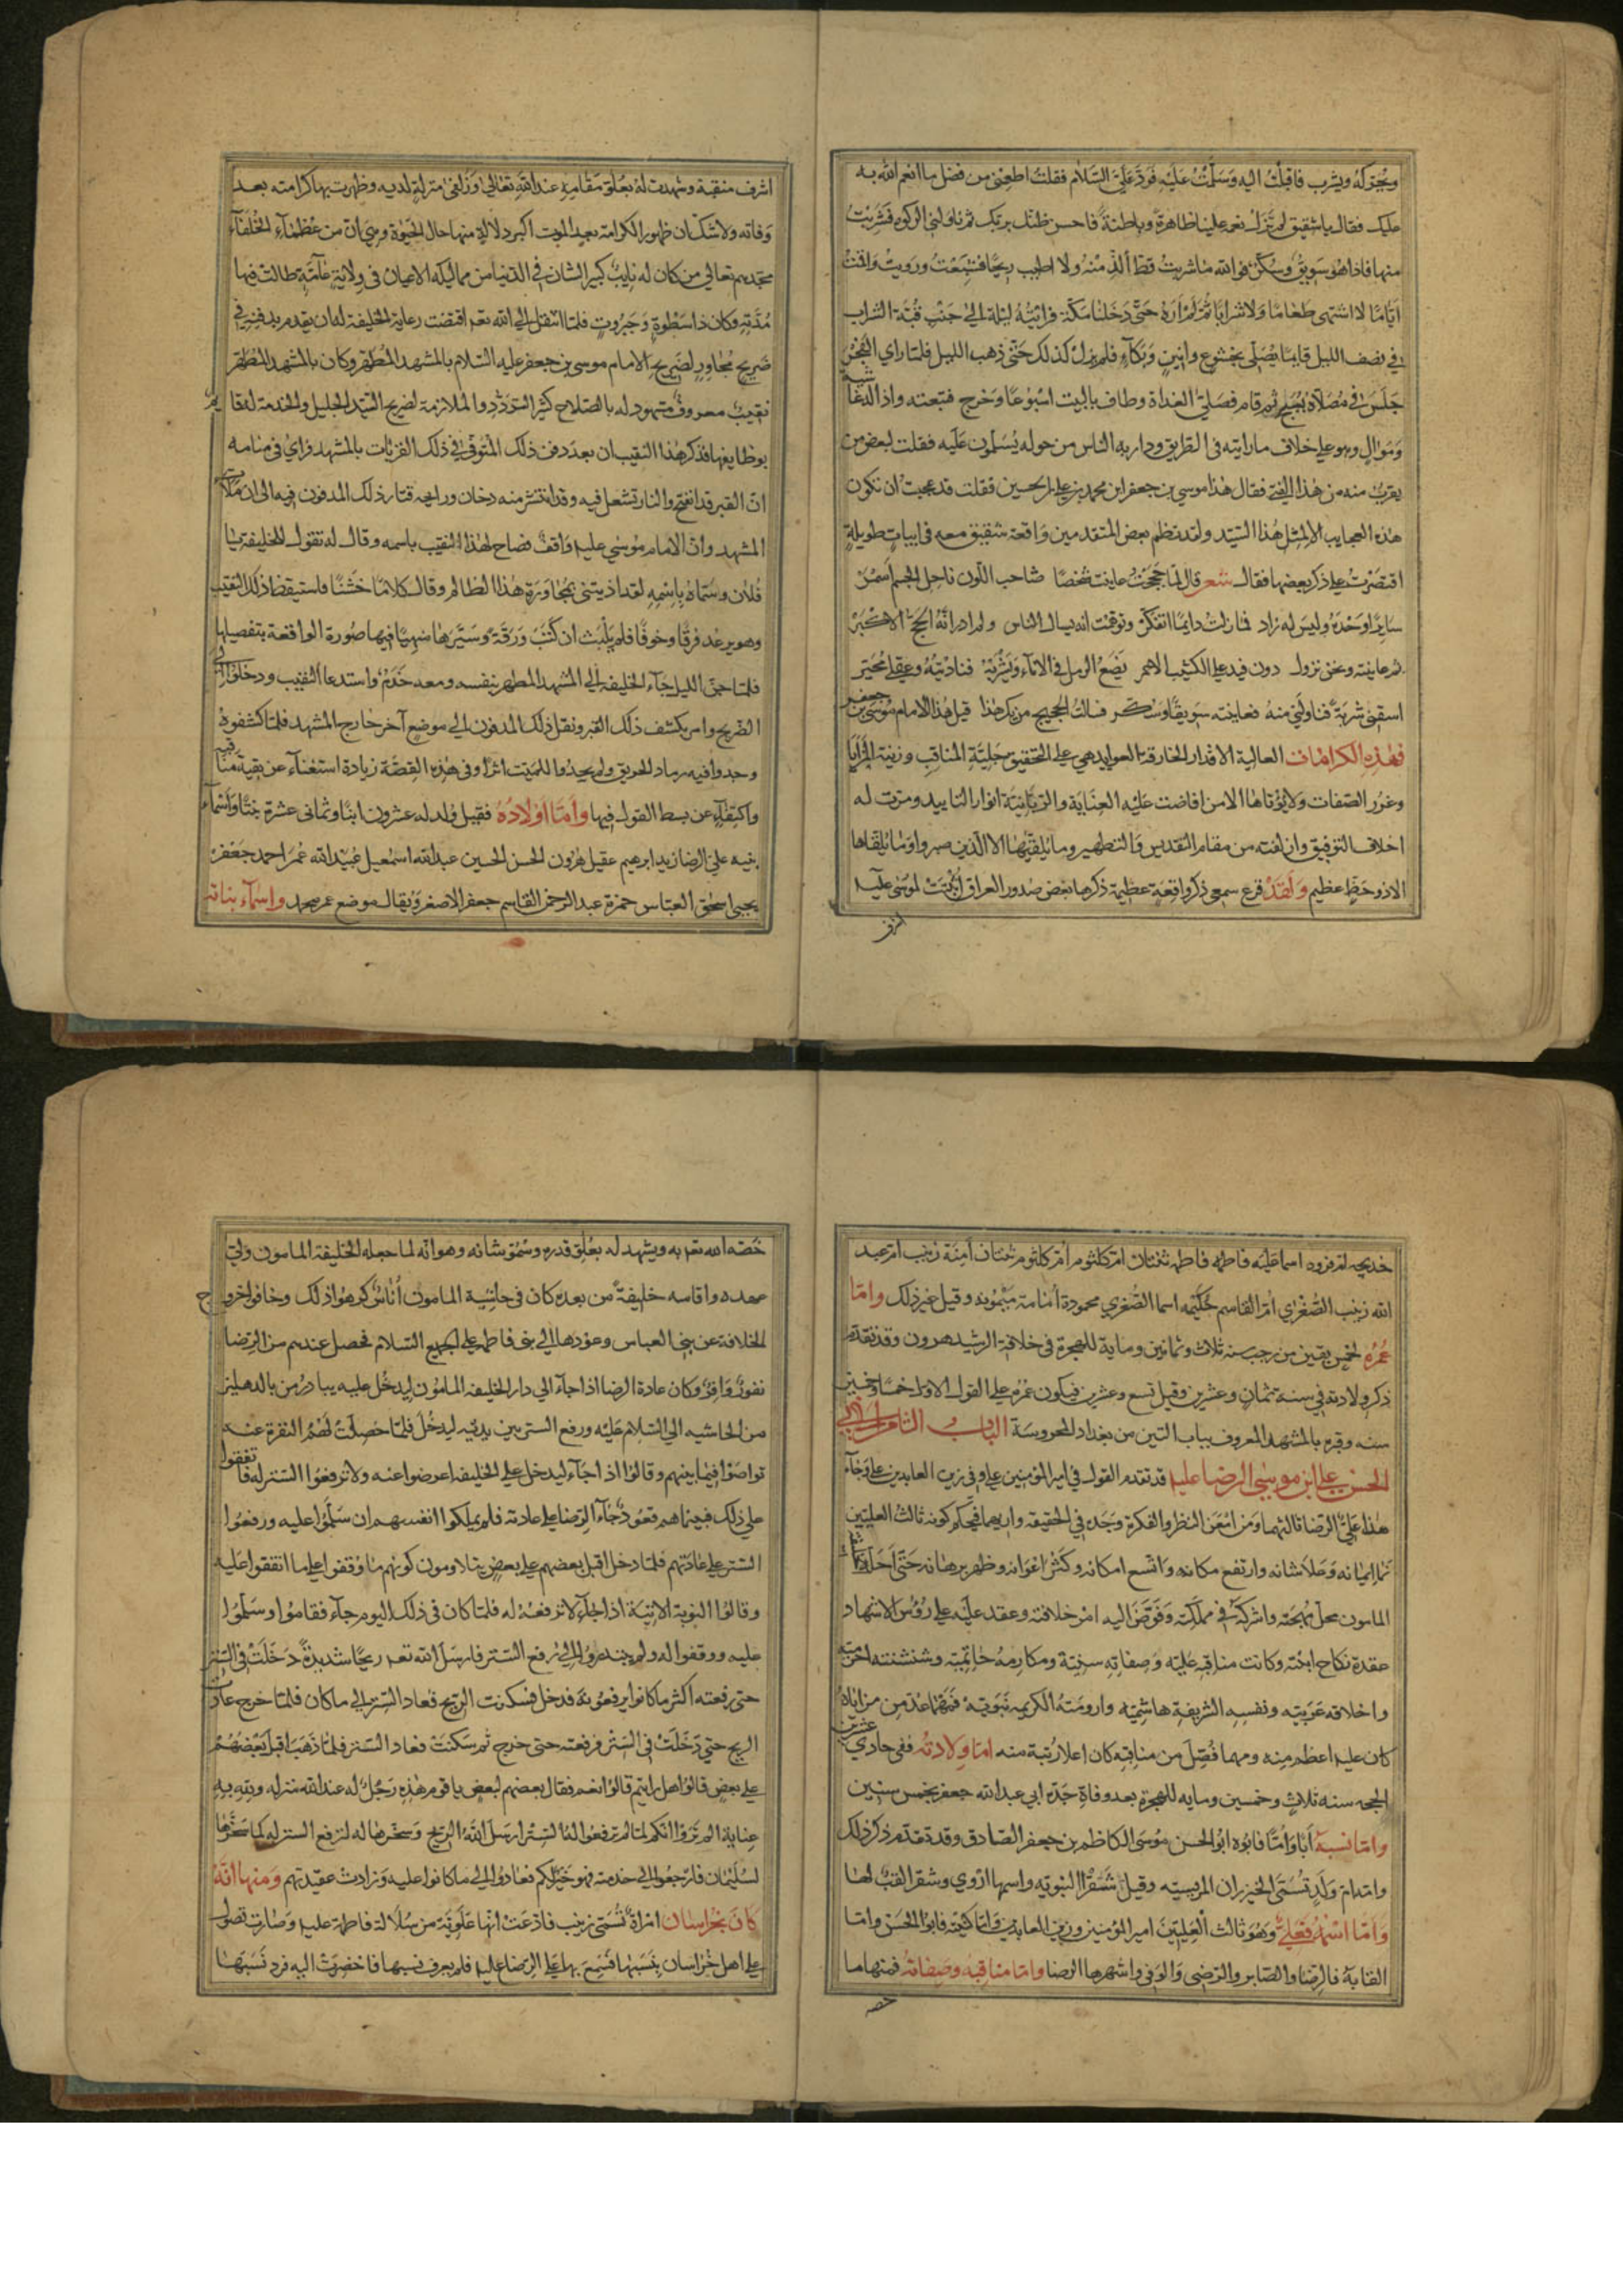 ويحركه ويشرب فاقبلت اليه وسلمت عليه فرد علي السلام فقلت اطعمني من فضل ما انعم الله به
عليك فقال يا شقيق لم تزل نعمه علينا ظاهرة وباطنة فاحسن ظنك بربك ثم ناولني الركوه فشربت
منها فاذا هو سويق وسكر فوالله ما شربت قط ألذ منه ولا اطيب ريحا فشبعت ورويت واقمت
اياما لا اشتهى طعاما ولا شرابا ثم لم اره حتى دخلنا مكة فرايته ليلة الى جنب قبة الشراب
في نصف الليل قايما يصلى بخشوع وانين وبكاء فلم يزل كذلك حتى ذهب الليل فلما راي الفجر
جلس في مصلاه يسبح ثم قام فصلى الغداة وطاف بالبيت اسبوعا وخرج فتبعته واذا له غاشية
وموال وهو على خلاف ما رايته في الطريق ودار به الناس من حوله يسلمون عليه فقلت لبعض من
يقرب منه من هذا الفتى فقال هذا موسى بن جعفر ابن محمد بن علي بن الحسين فقلت قد عجبت ان تكون
هذه العجايب الا لمثل هذا السيد ولقد نظم بعض المتقدمين واقعة شقيق معه في ابيات طويلة
اقتصرت على ذكر بعضها فقال شعر قال لما حججت عاينت شخصا شاحب اللون ناحل الجسم اسمر
سايرا وحده وليس له زاد فما زلت دايما اتفكر وتوهمت انه يسال الناس ولم ادر انه الحج الاكبر
ثم عاينته ونحن نزول دون فيد على الكثيب الاحمر يضع الرمل في الاناء ويشربه فناديته وعقلي محير
اسقني شربة فناولني منه فعاينته سويقا وسكر فسالت الحجيج من يك هذا قيل هذا الامام موسى بن جعفر
فهذه الكرامات العالية الاقدار الخارقة العوايد هي على التحقيق حلية المناقب وزينة المزايا
وغرر الصفات ولا يؤتاها الا من افاضت عليه العناية والربانية انوار التاييد ومرت له
اخلاف التوفيق وازلفته من مقام التقديس والتطهير وما يلقيها الا الذين صبروا وما يلقاها
الا ذو حظ عظيم ولقد قرع سمعي ذكر واقعة عظيمة ذكرها بعض صدور العراق اثبتت لموسى عليه
اشرف
اشرف منقبة وشهدت له بعلو مقامه عند الله تعالى وزلفى منزلة لديه وظهرت بها كرامته بعد
وفاته ولا شك ان ظهور الكرامة بعد الموت اكبر دلالة منها حال الحيوة وهي ان من عظماء الخلفاء
مجدهم تعالى من كان له نايب كبير الشان في الدنيا من مماليكه الاعيان في ولاية عامة طالت فيها
مدته وكان ذا سطوة وجبروت فلما انتقل الى الله تعه اقتضت رعاية الخليفة له ان يقدم بدفنه في
ضريح مجاور لضريح الامام موسى بن جعفر عليه السلام بالمشهد المطهر وكان بالمشهد المطهر
نقيب معروف مشهود له بالصلاح كثير التردد والملازمة لضريح السيد الجليل والخدمة له قايم
بوظايفها فذكر هذا النقيب ان بعد دفن ذلك المتوفى في ذلك القبر بات بالمشهد فراي في منامه
ان القبر قد انفتح والنار تشتعل فيه وقد انتشر منه دخان ورايحة قتار ذلك المدفون فيه الى ان ملات
المشهد وان الامام موسى عليه واقف فصاح لهذا النقيب باسمه وقال له تقول للخليفة يا
فلان وسماه باسمه لقد اذيتني بمجاورة هذا الظالم وقال كلاما خشنا فاستيقظ ذلك النقيب
وهو يرعد فرقا وخوفا فلم يلبث ان كتب ورقة وسيرها منهيا فيها صورة الواقعة بتفصيلها
فلما جن الليل جاء الخليفة الى المشهد المطهر بنفسه ومعه خدم واستدعا النقيب ودخلوا الى
الضريح وامر بكشف ذلك القبر ونقل ذلك المدفون الى موضع آخر خارج المشهد فلما كشفوه
وجدوا فيه رماد الحريق ولم يجدوا للميت اثرا وفي هذه القصة زيادة استغناء عن بقية مناقبه
واكتفاء عن بسط القول فيها واما اولاده فقيل ولد له عشرون ابنا وثماني عشرة بنتا واسماء
بنيه علي الرضا زيد ابرهيم عقيل هرون الحسن الحسين عبد الله اسمعيل عبيد الله عمر احمد جعفر
يحيى اسحق العباس حمزة عبد الرحمن القاسم جعفر الاصغر ويقال موضع عمر محمد واسماء بناته
خديجه ام فروه اسما عليه فاطمه فاطمه ثنتان ام كلثوم ام كلثوم ثنتان آمنة زينب ام عبد
الله زينب الصغرى ام القاسم حكيمه اسما الصغري محمودة أمامة ميمونه وقيل غير ذلك واما
عمره لخمس بقين من رجب سنه ثلاث وثمانين وماية للهجرة في خلافة الرشيد هرون وقد تقدم
ذكر ولادته في سنه ثمان وعشرين وقيل تسع وعشرين فيكون عمره على القول الاول خمسا وخمسين
سنه وقبره بالمشهد المعروف بباب التين من بغداد المحروسة الباب الثامن في ابي
الحسن علي ابن موسى الرضا عليه قد تقدم القول في امير المؤمنين علي وفي زين العابدين علي وجاء
هذا علي الرضا ثالثهما ومن امعن النظر والفكرة وجده في الحقيقه وارثهما فيحكم كونه ثالث العليين
نما ايمانه وعلا شانه وارتفع مكانه واتسع امكانه وكثر اعوانه وظهر برهانه حتى احله
المامون محل مهجته واشركه في مملكته وفوض اليه امر خلافته وعقد عليه على رؤس الاشهاد
عقدة نكاح ابنته وكانت مناقبه عليه وصفاته سنية ومكارمه حاتمية وشنشنته اخزميه
واخلاقه عربيه ونفسه الشريفة هاشميه وارومته الكريمه نبويه فمهما عد من مزاياه
كان عليه اعظم منه ومهما فصل من مناقبه كان اعلا رتبة منه اما ولادته ففي حادي عشرين
الحجه سنه ثلاث وخمسين ومايه للهجرة بعد وفاة جده ابي عبد الله جعفر بخمس سنين
واما نسبه أبا واما فابوه ابو الحسن موسى الكاظم بن جعفر الصادق وقد تقدم ذكر ذلك
وامه ام ولد تسمى الخيزران المريسيه وقيل شقرا النوبيه واسمها اروي وشقرا لقب لها
واما اسمه فعلي وهو ثالث العليين امير المؤمنين وزين العابدين واما كنيته فابو الحسن واما
القابه فالرضا والصابر والرضى والوفي واشهرها الرضا واما مناقبه وصفاته فمنها ما
خصه
خصه الله تعه به ويشهد له بعلو قدره وسمو شانه وهو انه لما جعله الخليفة المامون ولي
عهده واقامه خليفة من بعده كان في حاشية المامون أناس كرهوا ذلك وخافوا خروج
الخلافة عن بني العباس وعودها الى بني فاطمه على الجميع السلام فحصل عندهم من الرضا
نفور وافر وكان عادة الرضا اذا جاء الي دار الخليفه المامون ليدخل عليه يبادر من بالدهليز
من الحاشيه الى السلام عليه ورفع الستر بين يديه ليدخل فلما حصلت لهم النفرة عنه
تواصوا فيما بينهم وقالوا اذا جاء ليدخل على الخليفه اعرضوا عنه ولا ترفعوا الستر له فاتفقوا
على ذلك فبينما هم قعود جاء الرضا على عادته فلم يملكوا انفسهم ان سلموا عليه ورفعوا
الستر على عادتهم فلما دخل اقبل بعضهم على بعض يتلاومون كونهم ما وقفوا على ما اتفقوا عليه
وقالوا النوبة الاتية اذا جاء لا نرفعه له فلما كان في ذلك اليوم جاء فقاموا وسلموا
عليه ووقفوا له ولم يبتدروا الى رفع الستر فارسل الله تعه ريحا شديدة دخلت في الستر
حتى رفعته اكثر ما كانوا يرفعونه فدخل فسكنت الريح فعاد الستر الى ما كان فلما خرج عادت
الريح حتى دخلت في الستر فرفعته حتى خرج ثم سكنت فعاد الستر فلما ذهب اقبل بعضهم
على بعض قالوا هل رايتم قالوا نعم فقال بعضهم لبعض يا قوم هذه رجل له عند الله منزله وبقه به
عناية الم تروا انكم لما لم ترفعوا له الستر ارسل الله الريح وسخرها له لترفع الستر له كما سخرها
لسليمان فارجعوا الى خدمته فهو خير لكم فعادوا الى ما كانوا عليه وزادت عقيدتهم ومنها انه
كان بخراسان امراة تسمى زينب فادعت انها علوية من سلالة فاطمة عليه وصارت تصول
على اهل خراسان بنسبها فسمع بها علي الرضا عليه فلم يعرف نسبها فاحضرت اليه فرد نسبها